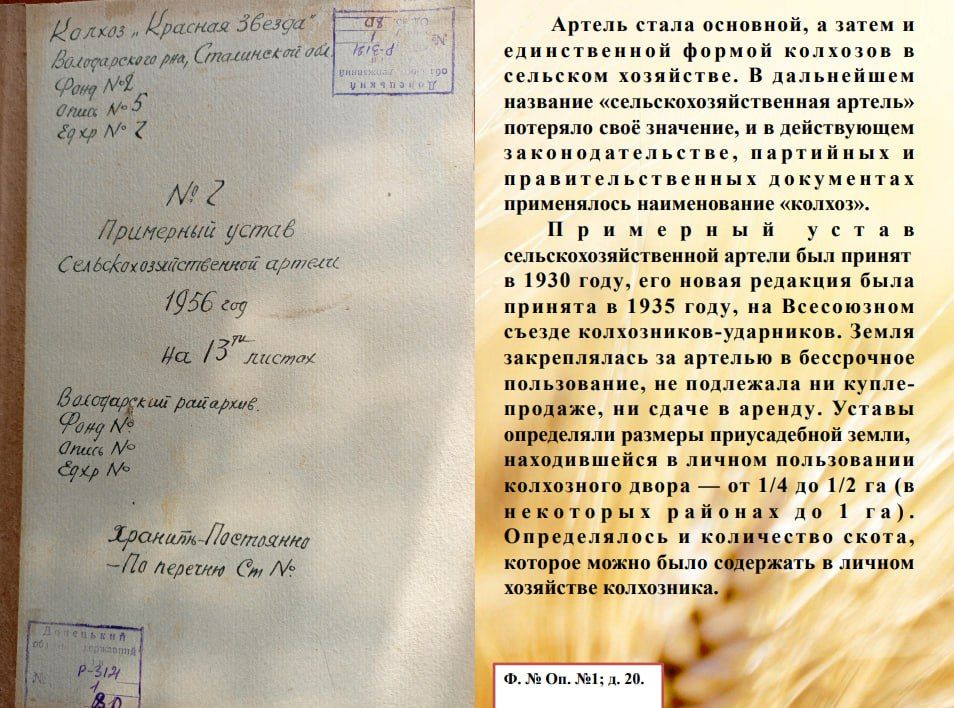 Колхоз „Красная Звезда"
Володарского р-на, Сталинской обл.
Фонд №2
Опись № 5
Ед хр № 2
№ 2
Примерный устав
Сельскохозяйственной артели
1956 год
На 13ти листах
Володарский райархив.
Фонд №
Опись №
Ед хр №
Хранить-Постоянно
-По перечню Ст №
Донецький
обл державний
№
Р-3121
1
80
Донецький
обласн державний
Р-3121
№
1
Од. зб. 80
Артель стала основной, а затем и
единственной формой колхозов в
сельском хозяйстве. В дальнейшем
название «сельскохозяйственная артель»
потеряло своё значение, и в действующем
законодательстве, партийных и
правительственных документах
применялось наименование «колхоз».
Примерный устав
сельскохозяйственной артели был принят
в 1930 году, его новая редакция была
принята в 1935 году, на Всесоюзном
съезде колхозников-ударников. Земля
закреплялась за артелью в бессрочное
пользование, не подлежала ни купле-
продаже, ни сдаче в аренду. Уставы
определяли размеры приусадебной земли,
находившейся в личном пользовании
колхозного двора — от 1/4 до 1/2 га (в
некоторых районах до 1 га).
Определялось и количество скота,
которое можно было содержать в личном
хозяйстве колхозника.
Ф. № Оп. №1; д. 20.